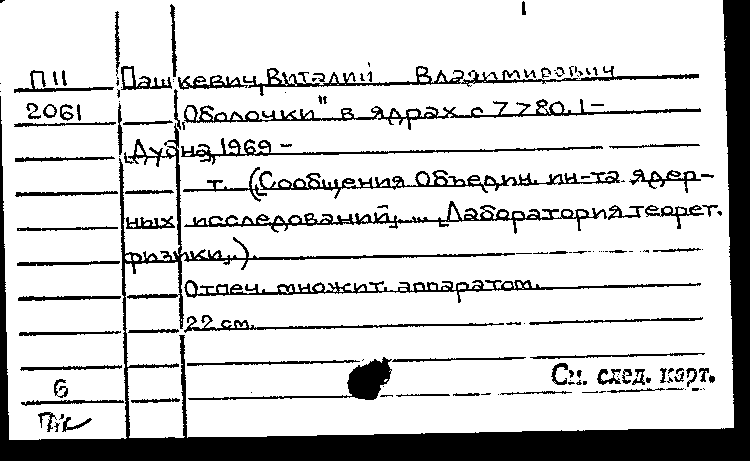 П11 Пашкевич, Виталий Владимирович
2061 "Оболочки" в ядрах с Z>80. 1-
Дубна, 1969 -
т. (Сообщения Объедин. ин-та ядер-
ных исследований. ... Лаборатория теорет.
физики.).
Отпеч. множит. аппаратом.
22 см.
6
См. след. карт.